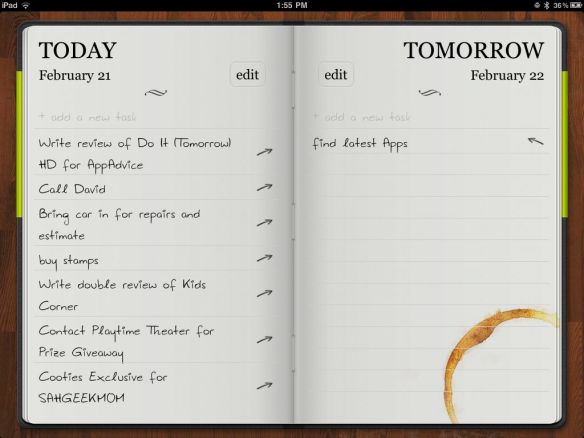 iPad 1:55 PM 36%
TODAY
February 21
edit
+ add a new task
Write review of Do It (Tomorrow)
HD for AppAdvice
Call David
Bring car in for repairs and
estimate
buy stamps
Write double review of Kids
Corner
Contact Playtime Theater for
Prize Giveaway
Cooties Exclusive for
SAHGEEKMOM
TOMORROW
edit
February 22
+ add a new task
find latest Apps